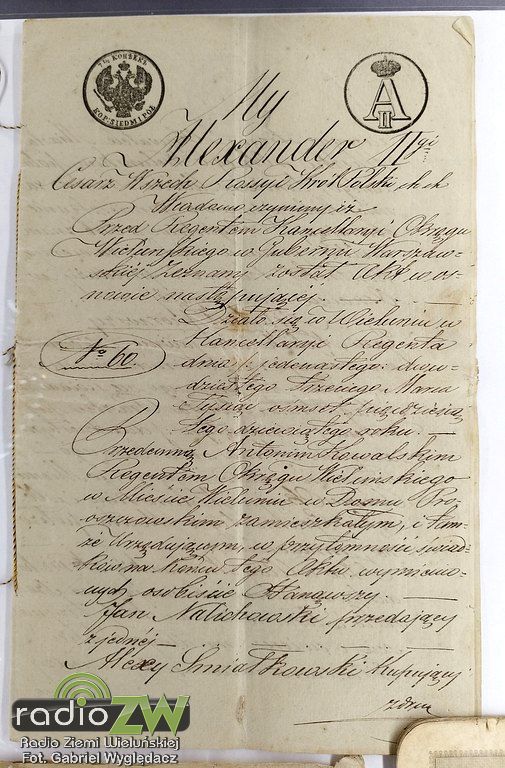 7½ KOPѢEKЪ
KOP: SIEDM I PÓŁ
A II
My
Alexander IIgi
Cesarz Wszech Rossyi Król Polski etc etc
Wiadomo czyniemy iż
Przed Regentem Kancellaryi Okręgu
Wieluńskiego w Gubernii Warszaw-
skiej zeznany został Akt w os-
nowie następującej.
Działo się w Wieluniu w
Kancellaryi Regenta
No 60.
dnia jedenastego: dwu-
dziestego trzeciego Marca
Tysiąc ośmset pięćdziesią-
tego dziewiątego roku.—
Przedemną Antonim Kowalskim
Regentem Okręgu Wieluńskiego
w Mieście Wieluniu w Domu
zamieszkałym, i tam-
że Urzędującym, w przytomności świad-
ków na końcu tego Aktu wymienio-
nych, osobiście stanąwszy.
Jan Malichowski przedający
z jednéj—
Alexy Śmiałkowski kupujący
z dru
radioZW
Radio Ziemi Wieluńskiej
Fot. Gabriel Wyględacz